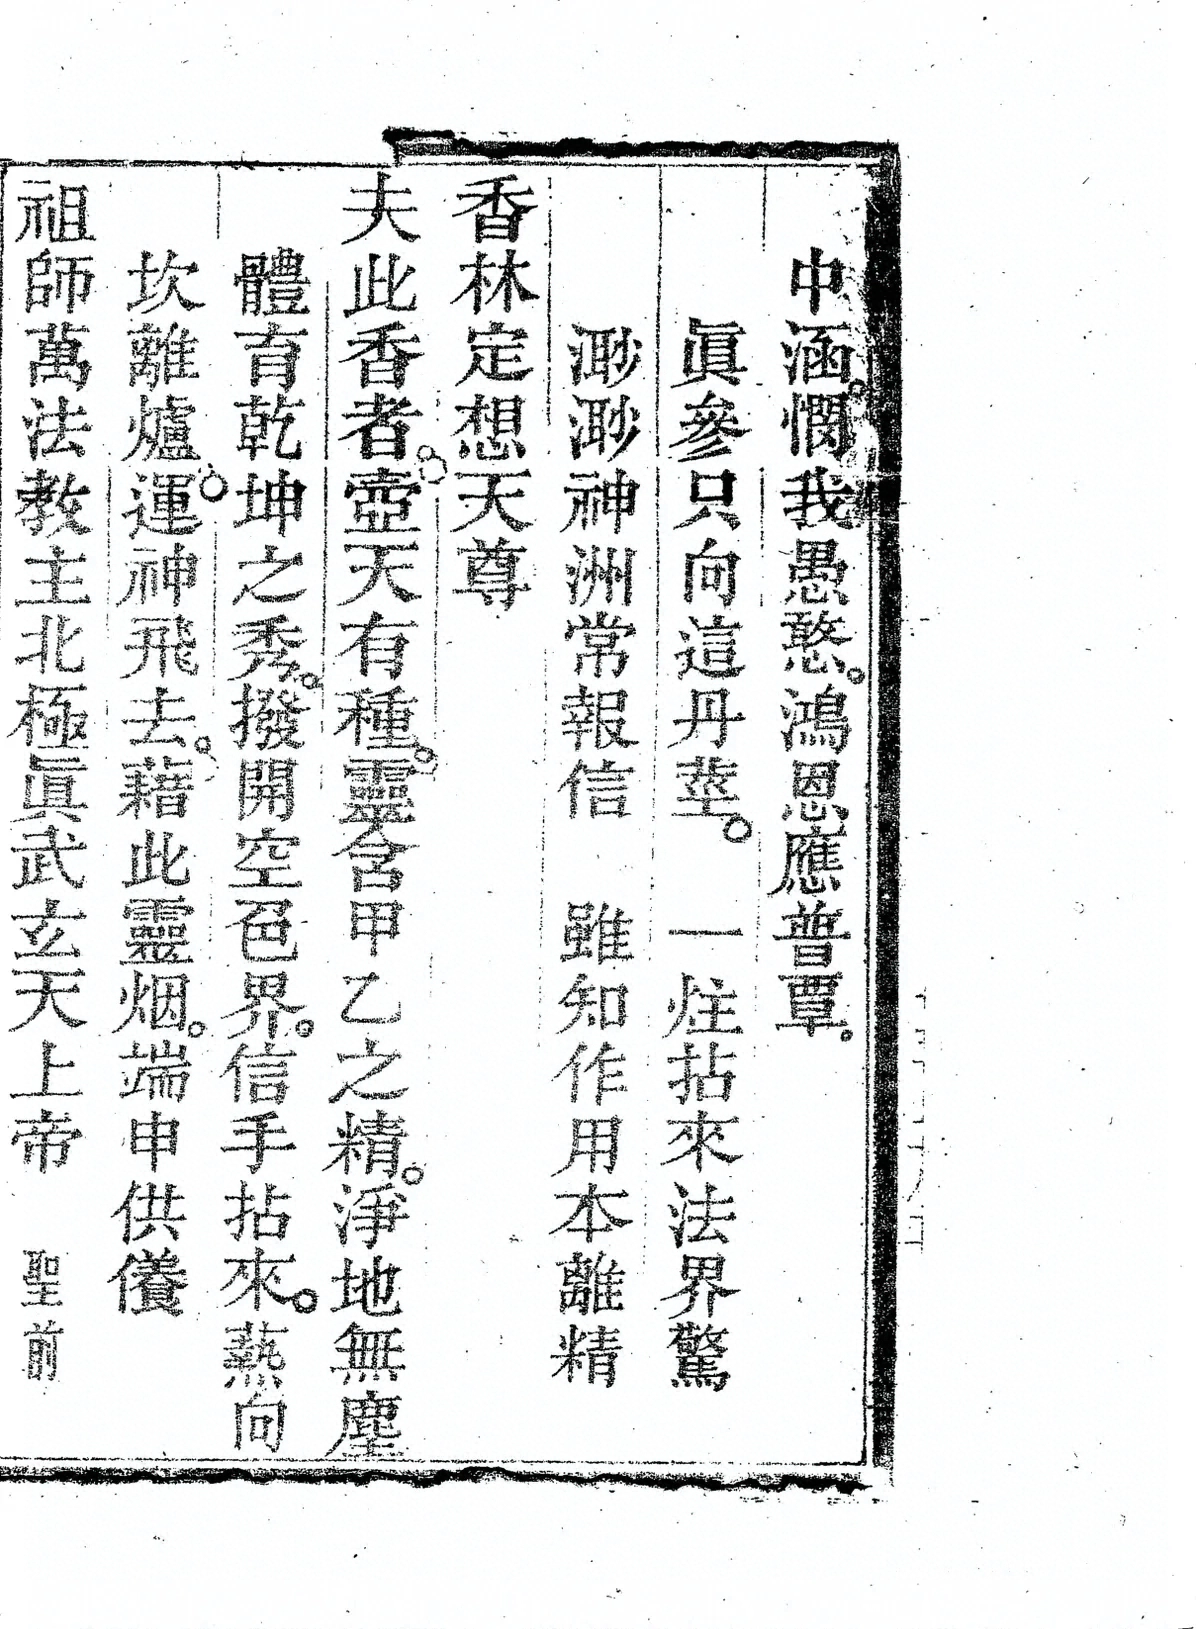 中涵。憫我愚憨。鴻恩應普覃。
眞參只向這丹臺。　一炷拈來法界驚
渺渺神洲常報信　雖知作用本離精
香林定想天尊
夫此香者。壺天有種。靈含甲乙之精。淨地無塵
體育乾坤之秀。撥開空色界。信手拈來。爇向
坎離爐。運神飛去。藉此靈烟。端申供養
祖師萬法教主北極眞武玄天上帝　聖前